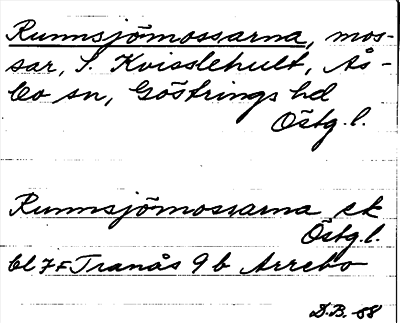 Runnsjömossarna, mos-
sar, S. Kvisslehult, Ås-
bo sn, Göstrings hd
Östg. l.
Runnsjömossarna ek
Östg. l.
bl 7F Tranås 9 b Arrebo
D.B. 68